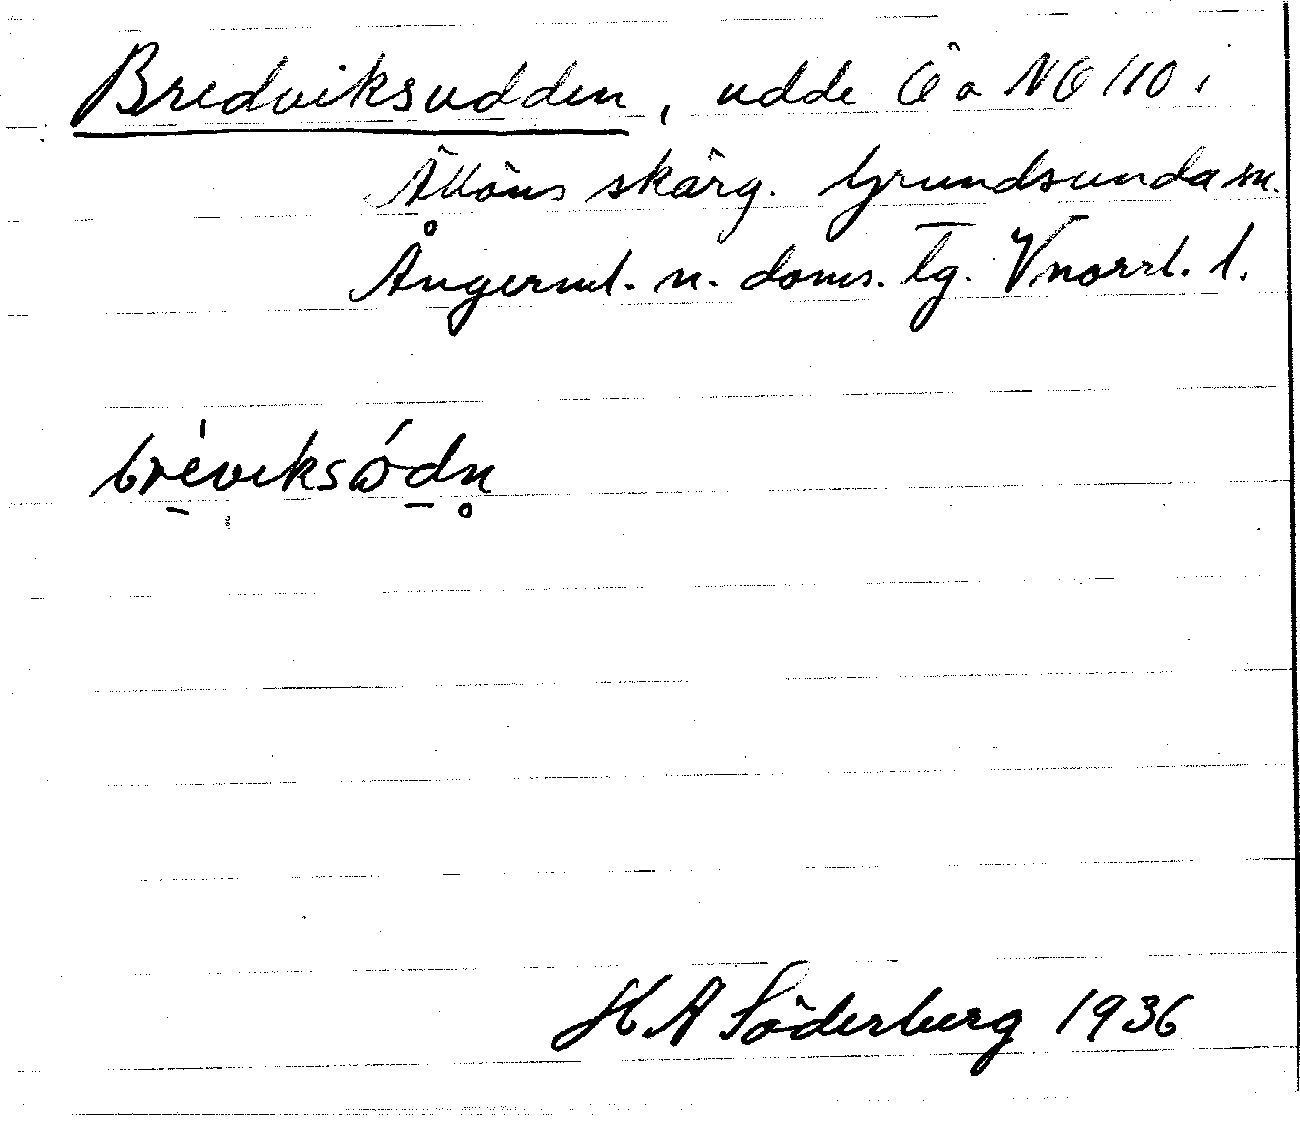 Bredviksudden, udde Ö a NO 110 i
Ällöns skärg. Grundsunda sn.
Ångerml. n. doms. tg. Vnorrl. l.
bréviksódn
H A Söderberg 1936